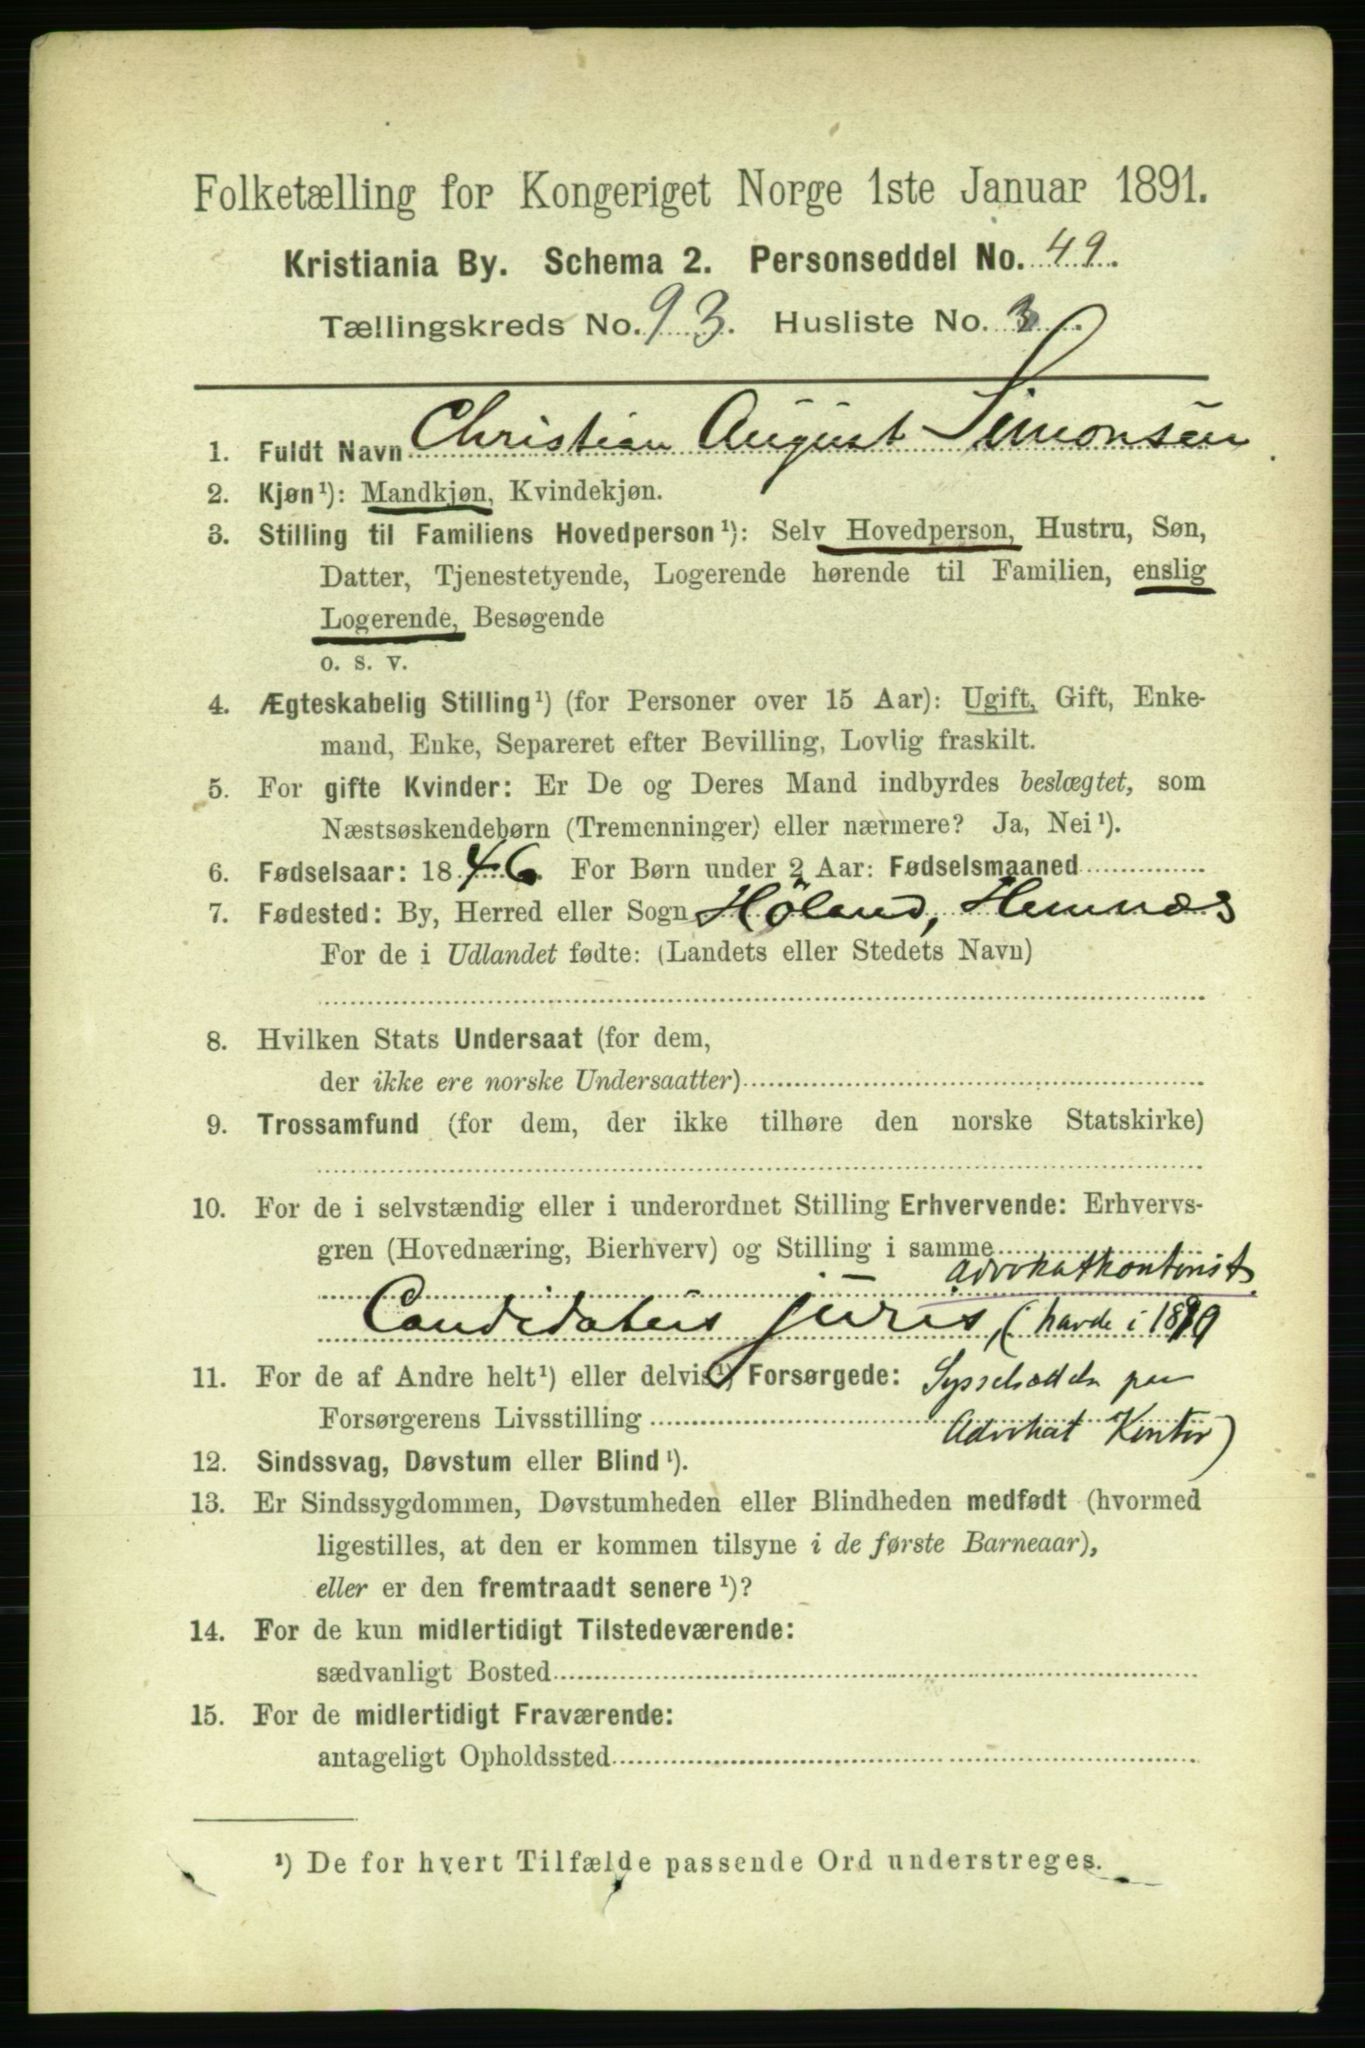 Folketælling for Kongeriget Norge 1ste Januar 1891.
Kristiania By. Schema 2. Personseddel No. 49.
Tællingskreds No. 93. Husliste No. 3.
1. Fuldt Navn Christian August Simonsen
2. Kjøn¹): Mandkjøn, Kvindekjøn.
3. Stilling til Familiens Hovedperson¹): Selv Hovedperson, Hustru, Søn,
Datter, Tjenestetyende, Logerende hørende til Familien, enslig
Logerende, Besøgende
o. s. v.
4. Ægteskabelig Stilling¹) (for Personer over 15 Aar): Ugift, Gift, Enke-
mand, Enke, Separeret efter Bevilling, Lovlig fraskilt.
5. For gifte Kvinder: Er De og Deres Mand indbyrdes beslægtet, som
Næstsøskendebørn (Tremenninger) eller nærmere? Ja, Nei¹).
6. Fødselsaar: 1846 For Børn under 2 Aar: Fødselsmaaned
7. Fødested: By, Herred eller Sogn Höland, Hemnæs
For de i Udlandet fødte: (Landets eller Stedets Navn)
8. Hvilken Stats Undersaat (for dem,
der ikke ere norske Undersaatter)
9. Trossamfund (for dem, der ikke tilhøre den norske Statskirke)
10. For de i selvstændig eller i underordnet Stilling Erhvervende: Erhvervs-
gren (Hovednæring, Bierhverv) og Stilling i samme
Advokatkontorist
Candidatus juris, (havde i 1890
11. For de af Andre helt¹) eller delvis¹) Forsørgede: Sysselsættelse paa
Forsørgerens Livsstilling Advokat Kontor)
12. Sindssvag, Døvstum eller Blind¹).
13. Er Sindssygdommen, Døvstumheden eller Blindheden medfødt (hvormed
ligestilles, at den er kommen tilsyne i de første Barneaar),
eller er den fremtraadt senere¹)?
14. For de kun midlertidigt Tilstedeværende:
sædvanligt Bosted
15. For de midlertidigt Fraværende:
antageligt Opholdssted
¹) De for hvert Tilfælde passende Ord understreges.